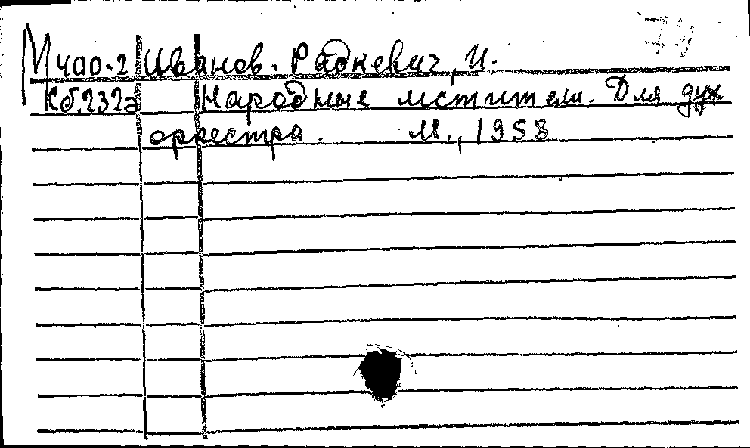 М400-2 Иванов-Радкевич, И.
Кб.232а Народные мстители. Для дух
оркестра. М., 1958